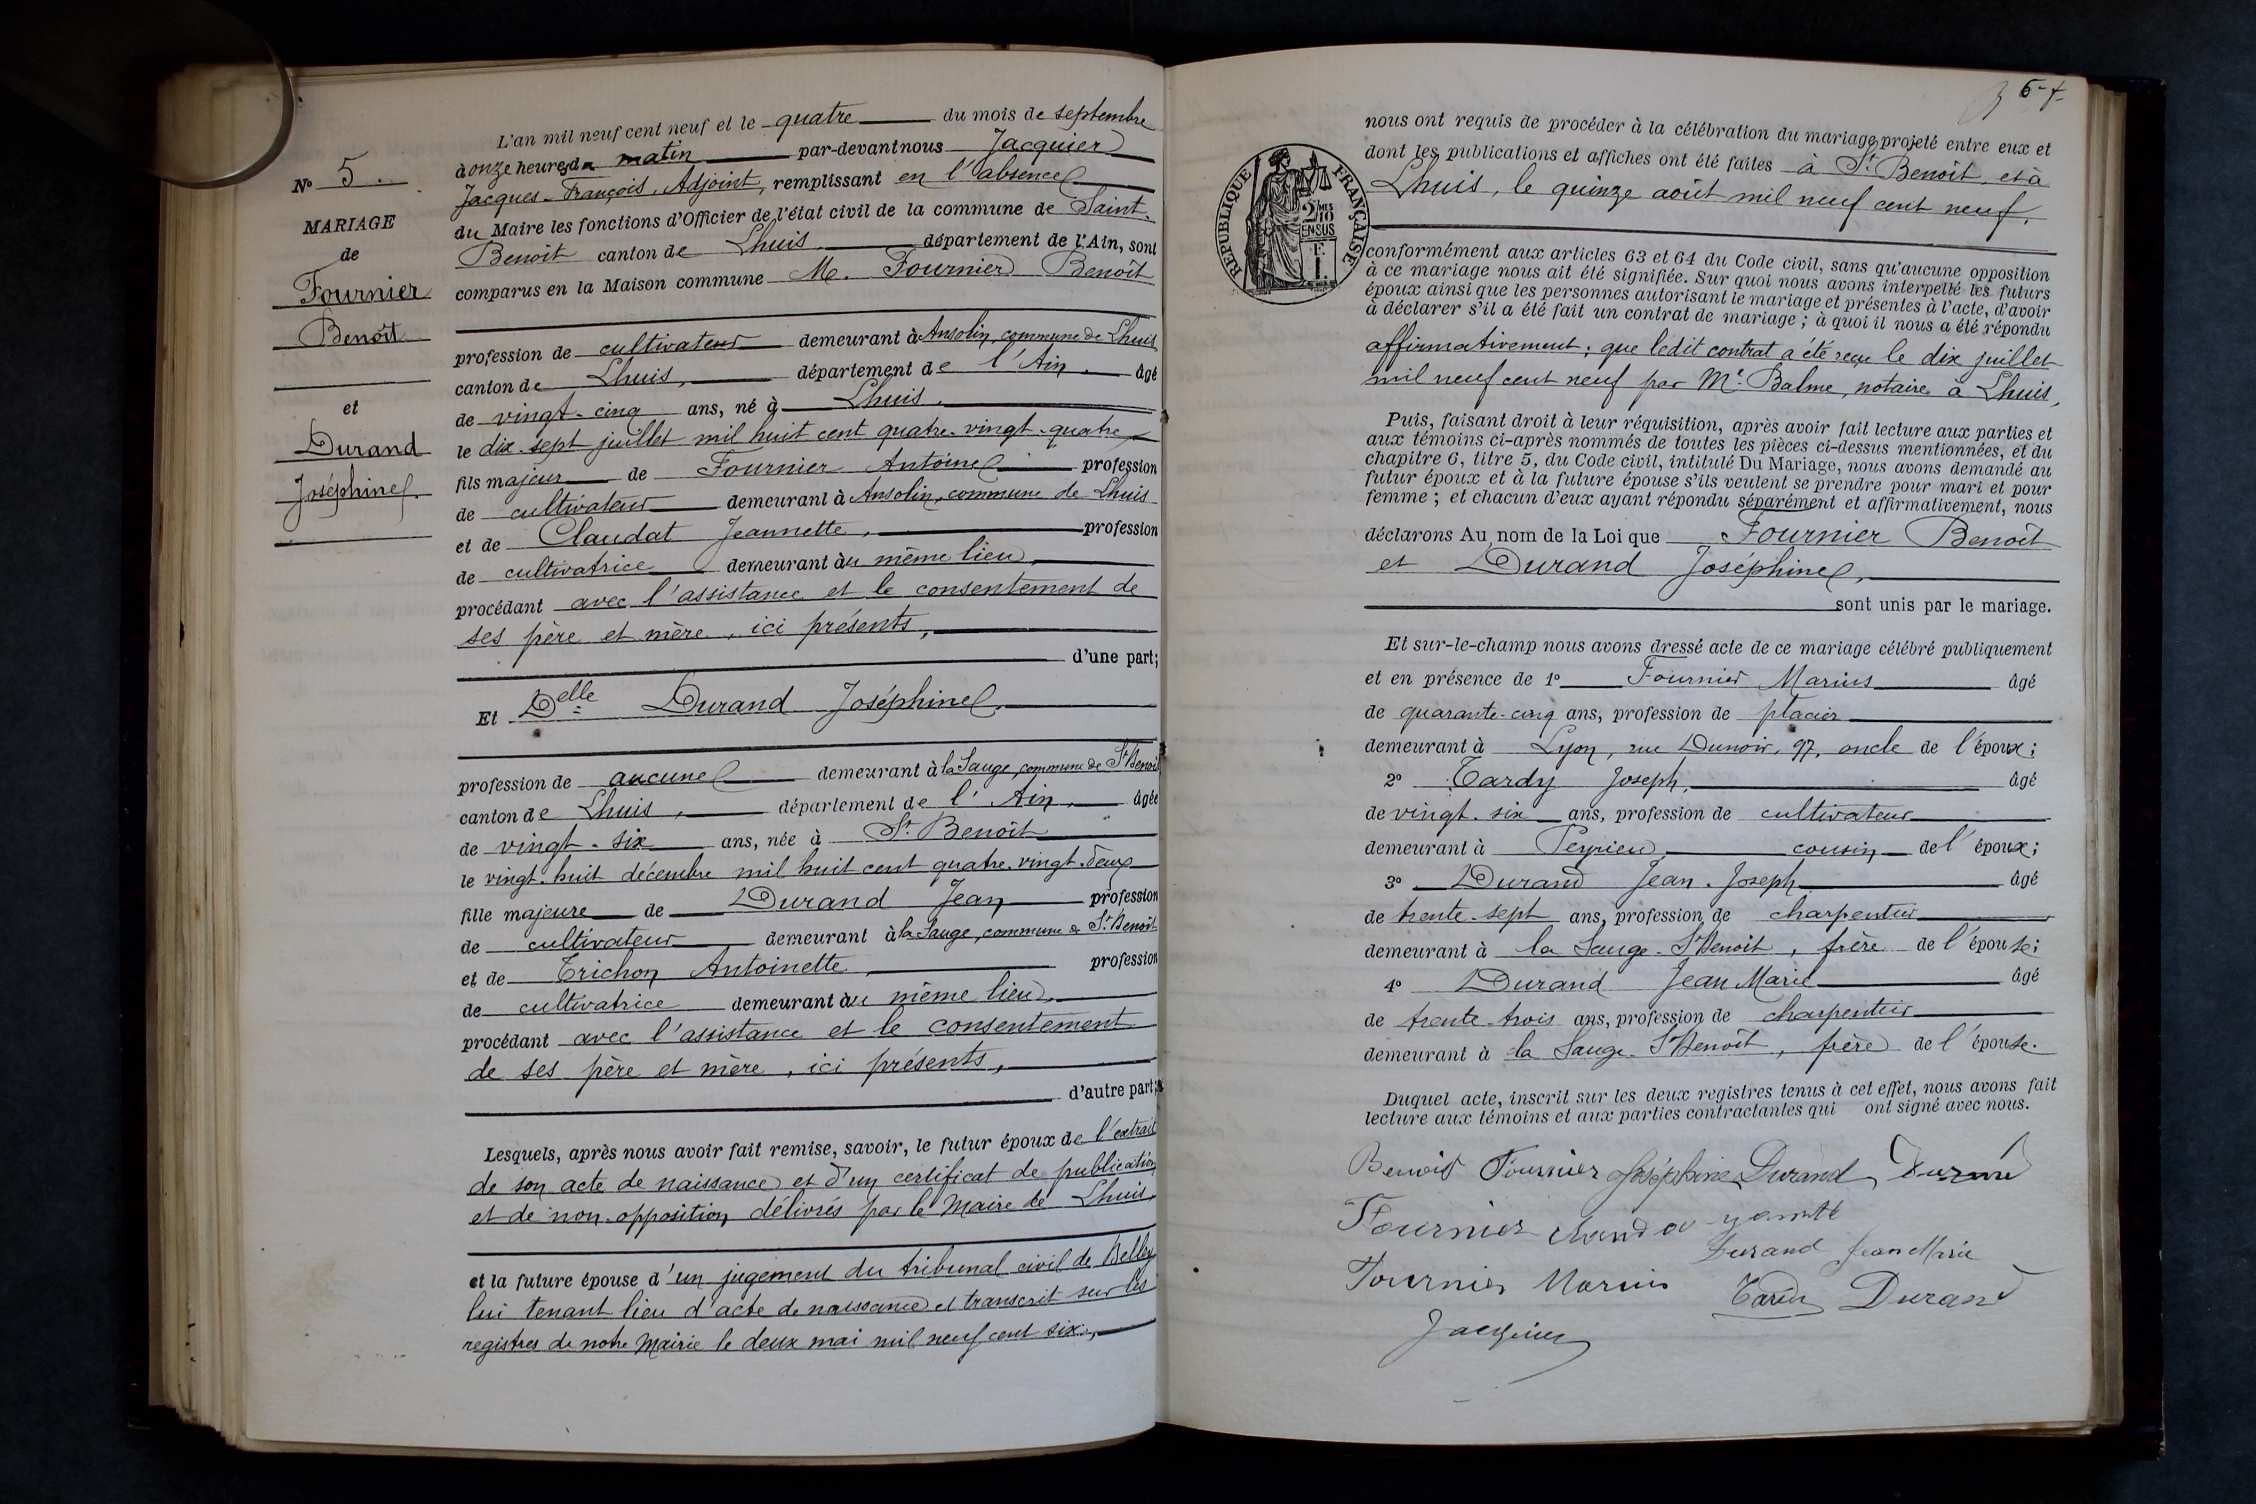 N° 5.
MARIAGE
de
Fournier
Benoît
et
Durand
Joséphine
L'an mil neuf cent neuf et le quatre du mois de septembre
à onze heures du matin par-devant nous Jacquier
Jacques-François, Adjoint, remplissant en l'absence
du Maire les fonctions d'Officier de l'état civil de la commune de Saint-
Benoît canton de Lhuis département de l'Ain, sont
comparus en la Maison commune M. Fournier Benoît
profession de cultivateur demeurant à Ansolin, commune de Lhuis
canton de Lhuis, département de l'Ain. âgé
de vingt-cinq ans, né à Lhuis.
le dix-sept juillet mil huit cent quatre-vingt-quatre
fils majeur de Fournier Antoine profession
de cultivateur demeurant à Ansolin, commune de Lhuis
et de Claudat Jeannette, profession
de cultivatrice demeurant au même lieu,
procédant avec l'assistance et le consentement de
ses père et mère, ici présents,
d'une part;
Et Delle Durand Joséphine.
profession de aucune demeurant à la Sauge, commune de St Benoit
canton de Lhuis, département de l'Ain, âgée
de vingt-six ans, née à St Benoît
le vingt-huit décembre mil huit cent quatre-vingt-deux
fille majeure de Durand Jean profession
de cultivateur demeurant à la Sauge, commune de St Benoît
et de Trichon Antoinette, profession
de cultivatrice demeurant au même lieu,
procédant avec l'assistance et le consentement
de ses père et mère, ici présents,
d'autre part;
Lesquels, après nous avoir fait remise, savoir, le futur époux de l'extrait
de son acte de naissance et d'un certificat de publication
et de non-opposition délivrés par le Maire de Lhuis,
et la future épouse d'un jugement du tribunal civil de Belley
lui tenant lieu d'acte de naissance et transcrit sur les
registres de notre Mairie le deux mai mil neuf cent six,
RÉPUBLIQUE FRANÇAISE
2/10
EN SUS
1 F.
nous ont requis de procéder à la célébration du mariage projeté entre eux et
dont les publications et affiches ont été faites à St Benoît, et à
Lhuis, le quinze août mil neuf cent neuf,
conformément aux articles 63 et 64 du Code civil, sans qu'aucune opposition
à ce mariage nous ait été signifiée. Sur quoi nous avons interpellé les futurs
époux ainsi que les personnes autorisant le mariage et présentes à l'acte, d'avoir
à déclarer s'il a été fait un contrat de mariage; à quoi il nous a été répondu
affirmativement; que ledit contrat a été reçu le dix juillet
mil neuf cent neuf par Me Balme, notaire à Lhuis,
Puis, faisant droit à leur réquisition, après avoir fait lecture aux parties et
aux témoins ci-après nommés de toutes les pièces ci-dessus mentionnées, et du
chapitre 6, titre 5, du Code civil, intitulé Du Mariage, nous avons demandé au
futur époux et à la future épouse s'ils veulent se prendre pour mari et pour
femme; et chacun d'eux ayant répondu séparément et affirmativement, nous
déclarons Au nom de la Loi que Fournier Benoît
et Durand Joséphine,
sont unis par le mariage.
Et sur-le-champ nous avons dressé acte de ce mariage célébré publiquement
et en présence de 1° Fournier Marius âgé
de quarante-cinq ans, profession de placier
demeurant à Lyon, rue Dunoir, 97, oncle de l'époux;
2° Tardy Joseph, âgé
de vingt-six ans, profession de cultivateur
demeurant à Peyrieu cousin de l'époux;
3° Durand Jean-Joseph âgé
de trente-sept ans, profession de charpentier
demeurant à la Sauge-St Benoit, frère de l'épouse;
4° Durand Jean Marie âgé
de trente-trois ans, profession de charpentier
demeurant à la Sauge-St Benoît, frère de l'épouse.
Duquel acte, inscrit sur les deux registres tenus à cet effet, nous avons fait
lecture aux témoins et aux parties contractantes qui ont signé avec nous.
Benoit Fournier Joséphine Durand Durand
Fournier
Durand Jean Marie
Fournier Marius Tardy Durand
Jacquier